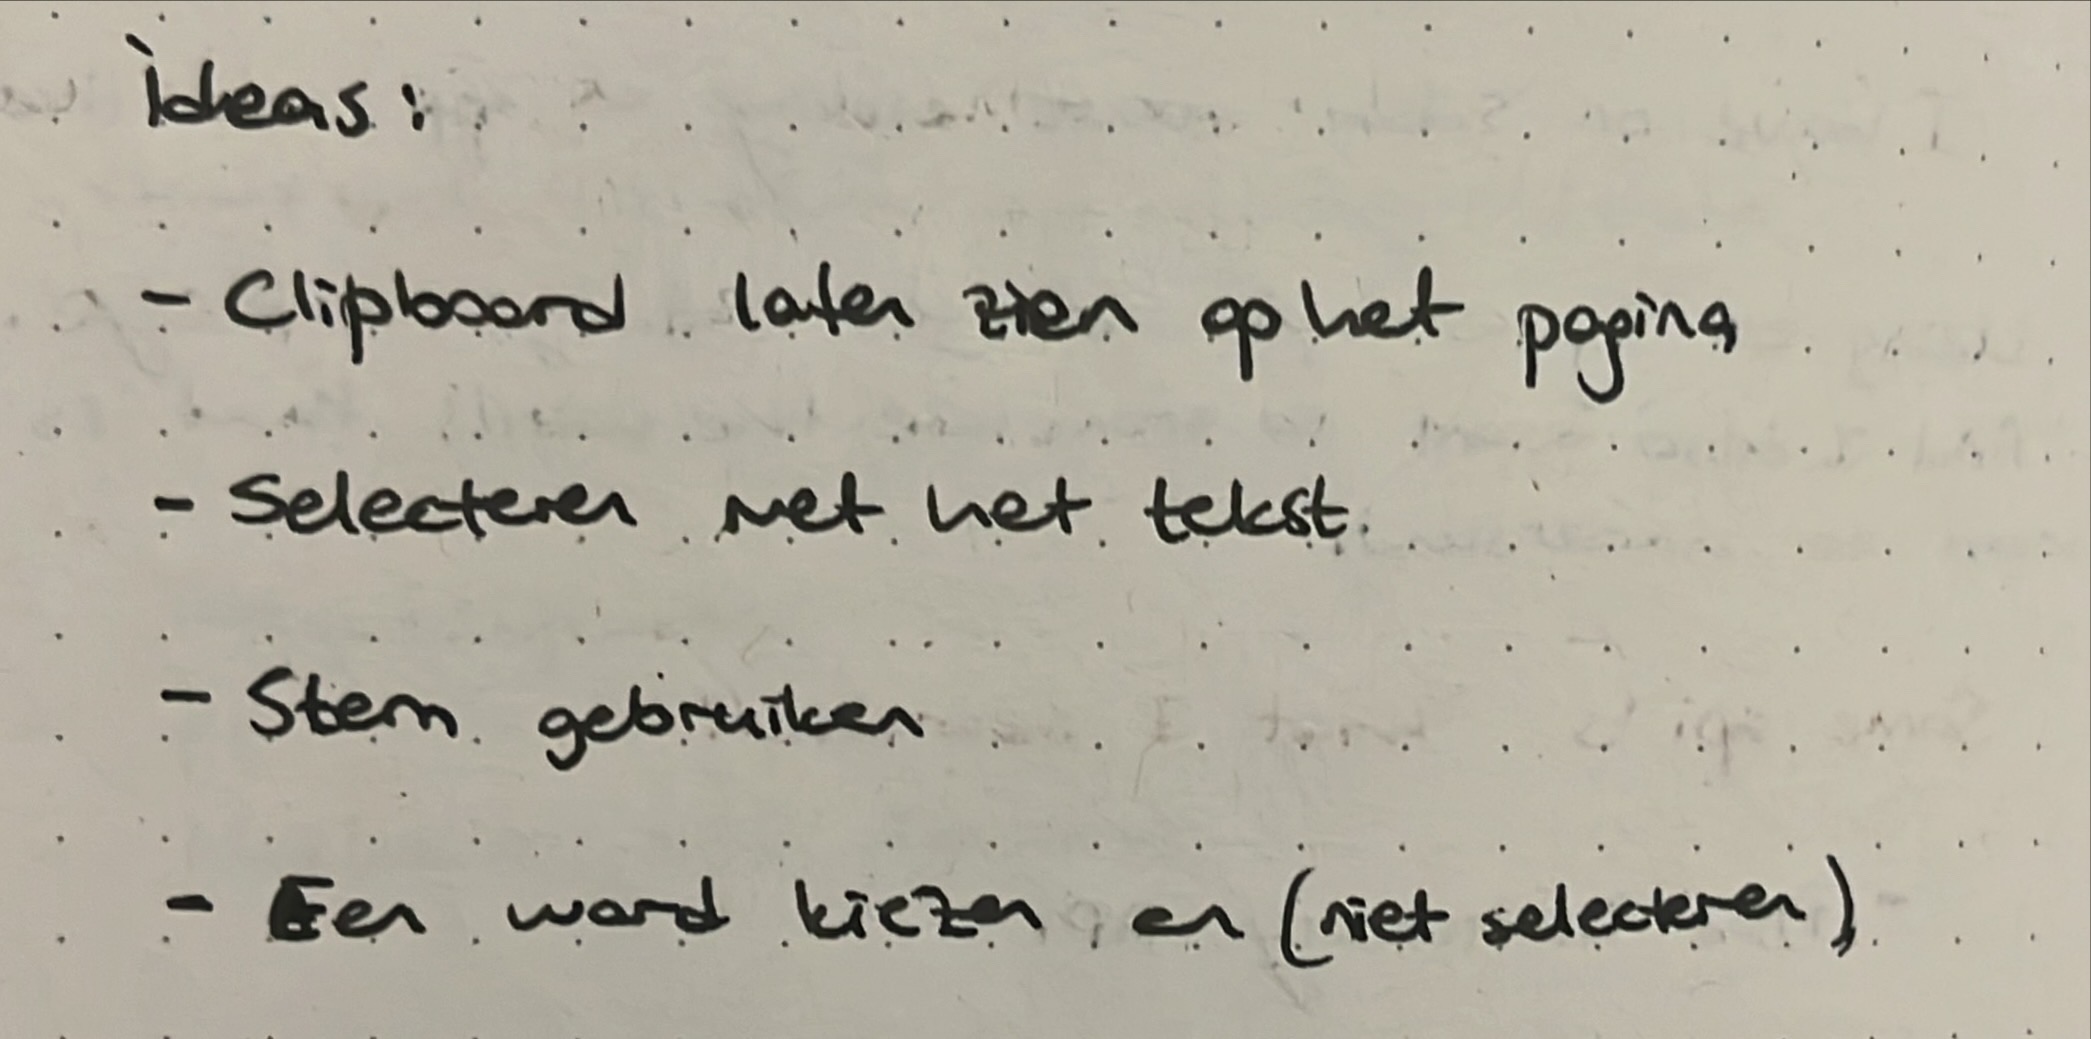 ideas:
- Clipboard laten zien op het pagina
- Selecteren met het tekst.
- Stem gebruiken
- Een word kiezen en (niet selecteren)